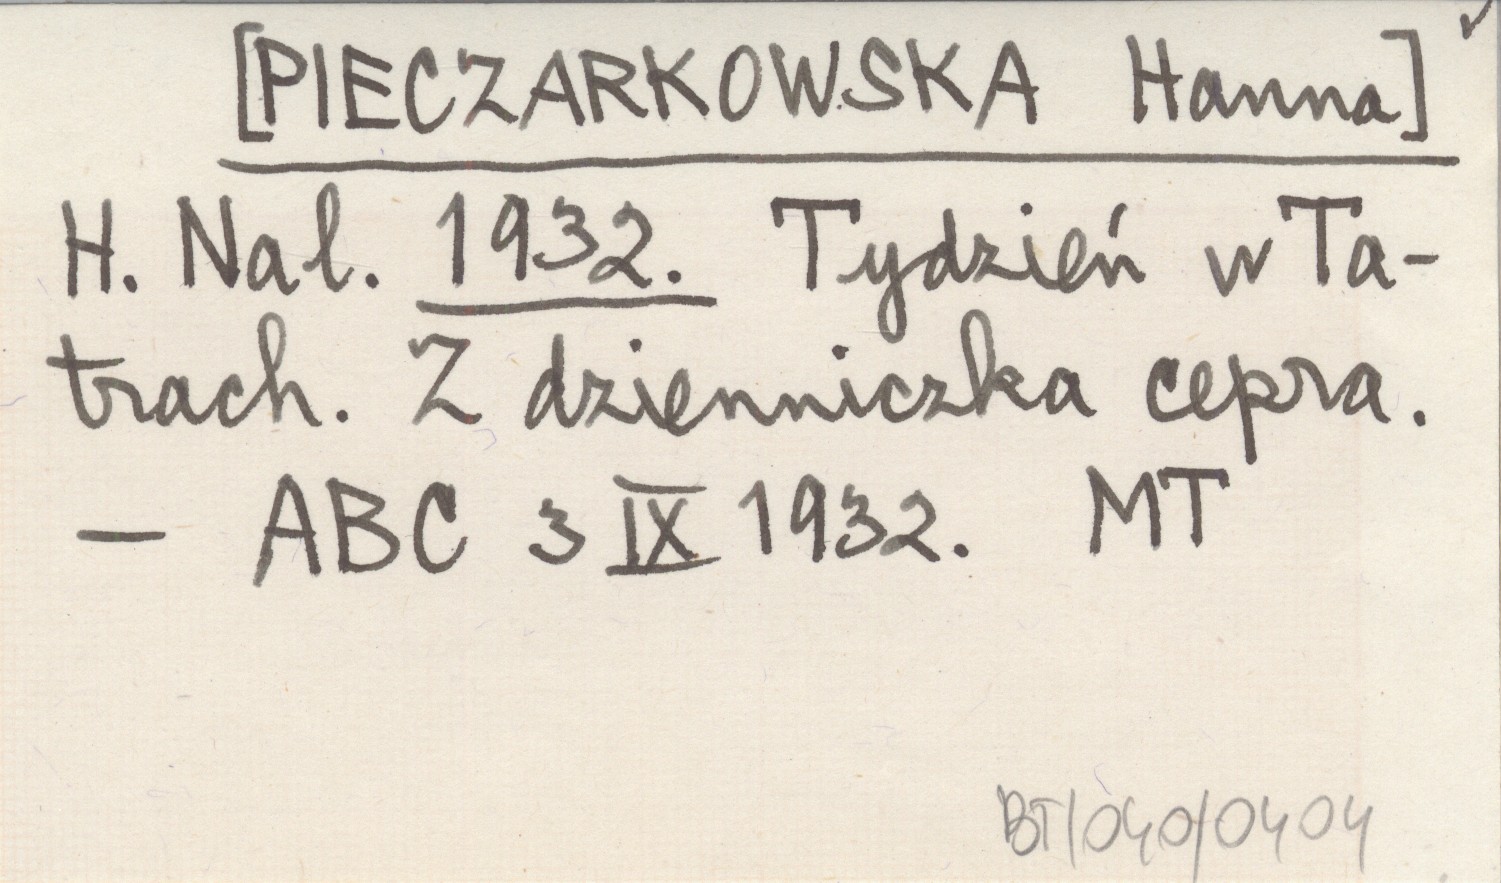 [PIECZARKOWSKA Hanna]
H. Nal. 1932. Tydzień w Ta-
trach. Z dzienniczka cepra.
— ABC 3 IX 1932. MT
BT/040/0404